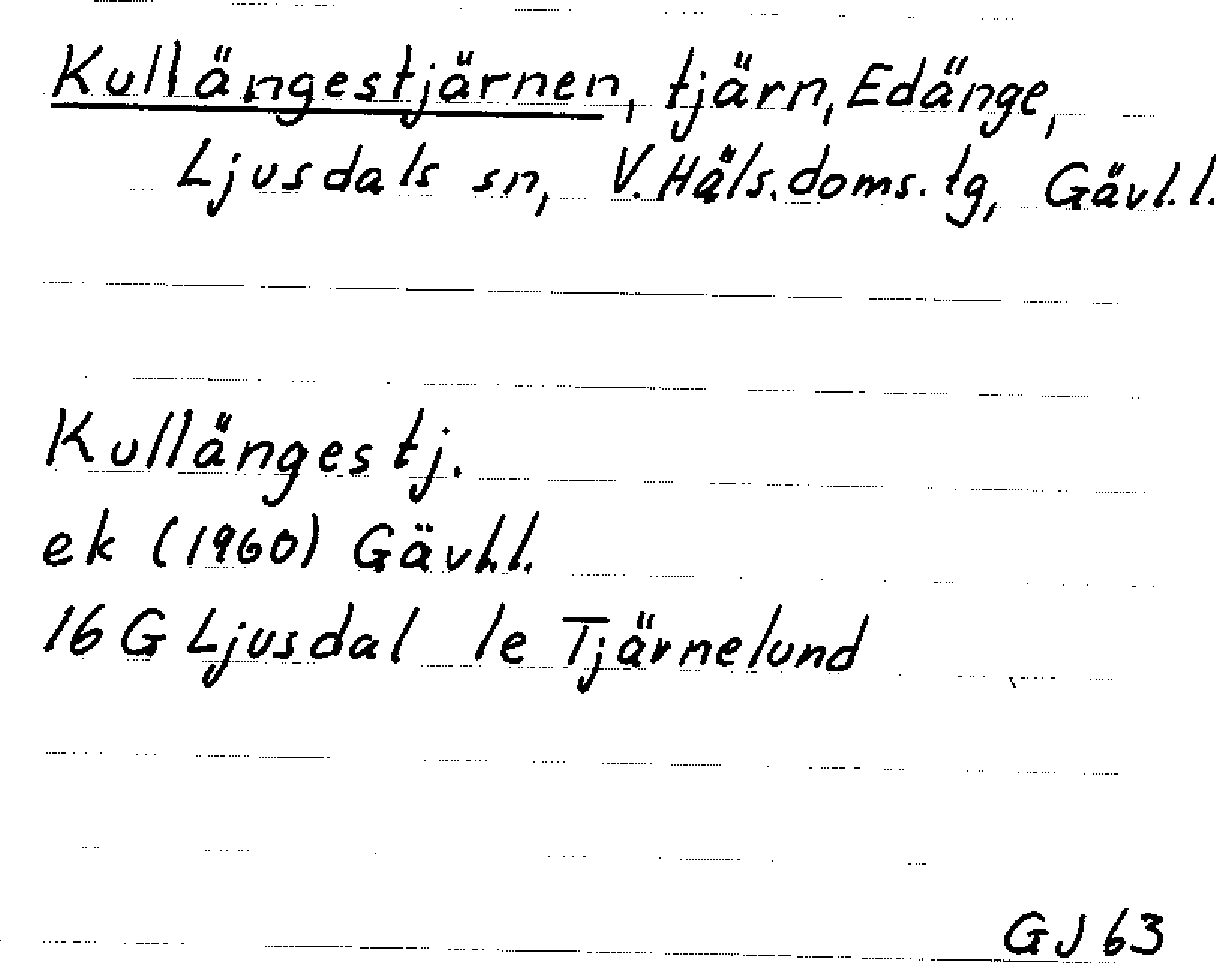 Kullängestjärnen, tjärn, Edänge,
Ljusdals sn, V. Häls. doms. tg, Gävl. l.
Kullängestj.
ek (1960) Gävl.l.
16 G Ljusdal 1e Tjärnelund
GJ 63